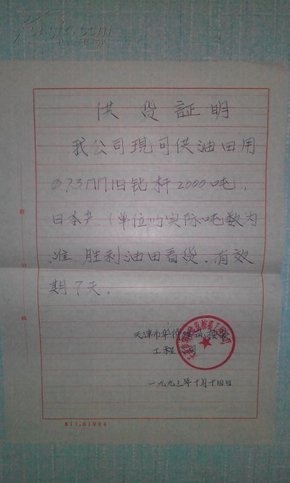 供货証明
我公司現可供油田用
Ø73mm旧钻杆2000吨，
日本产（单位吨实际吨数为
准 胜利油田看货.有效
期7天.
天津市
工程
一九九三年十月十四日